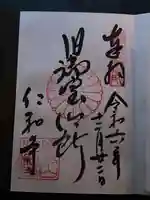 奉拝
令和六年
十二月廿二日
旧御室御所
仁和寺